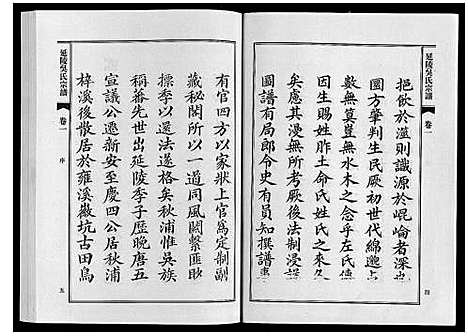 延陵吳氏宗譜
卷一
四
挹飲於濫則識源於崐崙者深
國方肇判生民厥初世代綿邈
數無算豈無水木之念乎左氏傳
因生賜姓胙土命氏姓氏之來
矣應其漫無所考厥後法制浸
圖譜有局郎令史有員知撰譜事
有官四方以家狀上官爲定制副
藏秘閣所以一道同風關繫匪眇
標季以還法遂格矣秋浦惟吳族
稱蕃先世出延陵季子歷晚唐五
宣議公遷新安至慶四公居秋浦
梓溪後散居於雍溪嶶坑古田鳥
延陵吳氏宗譜
卷一
序
五